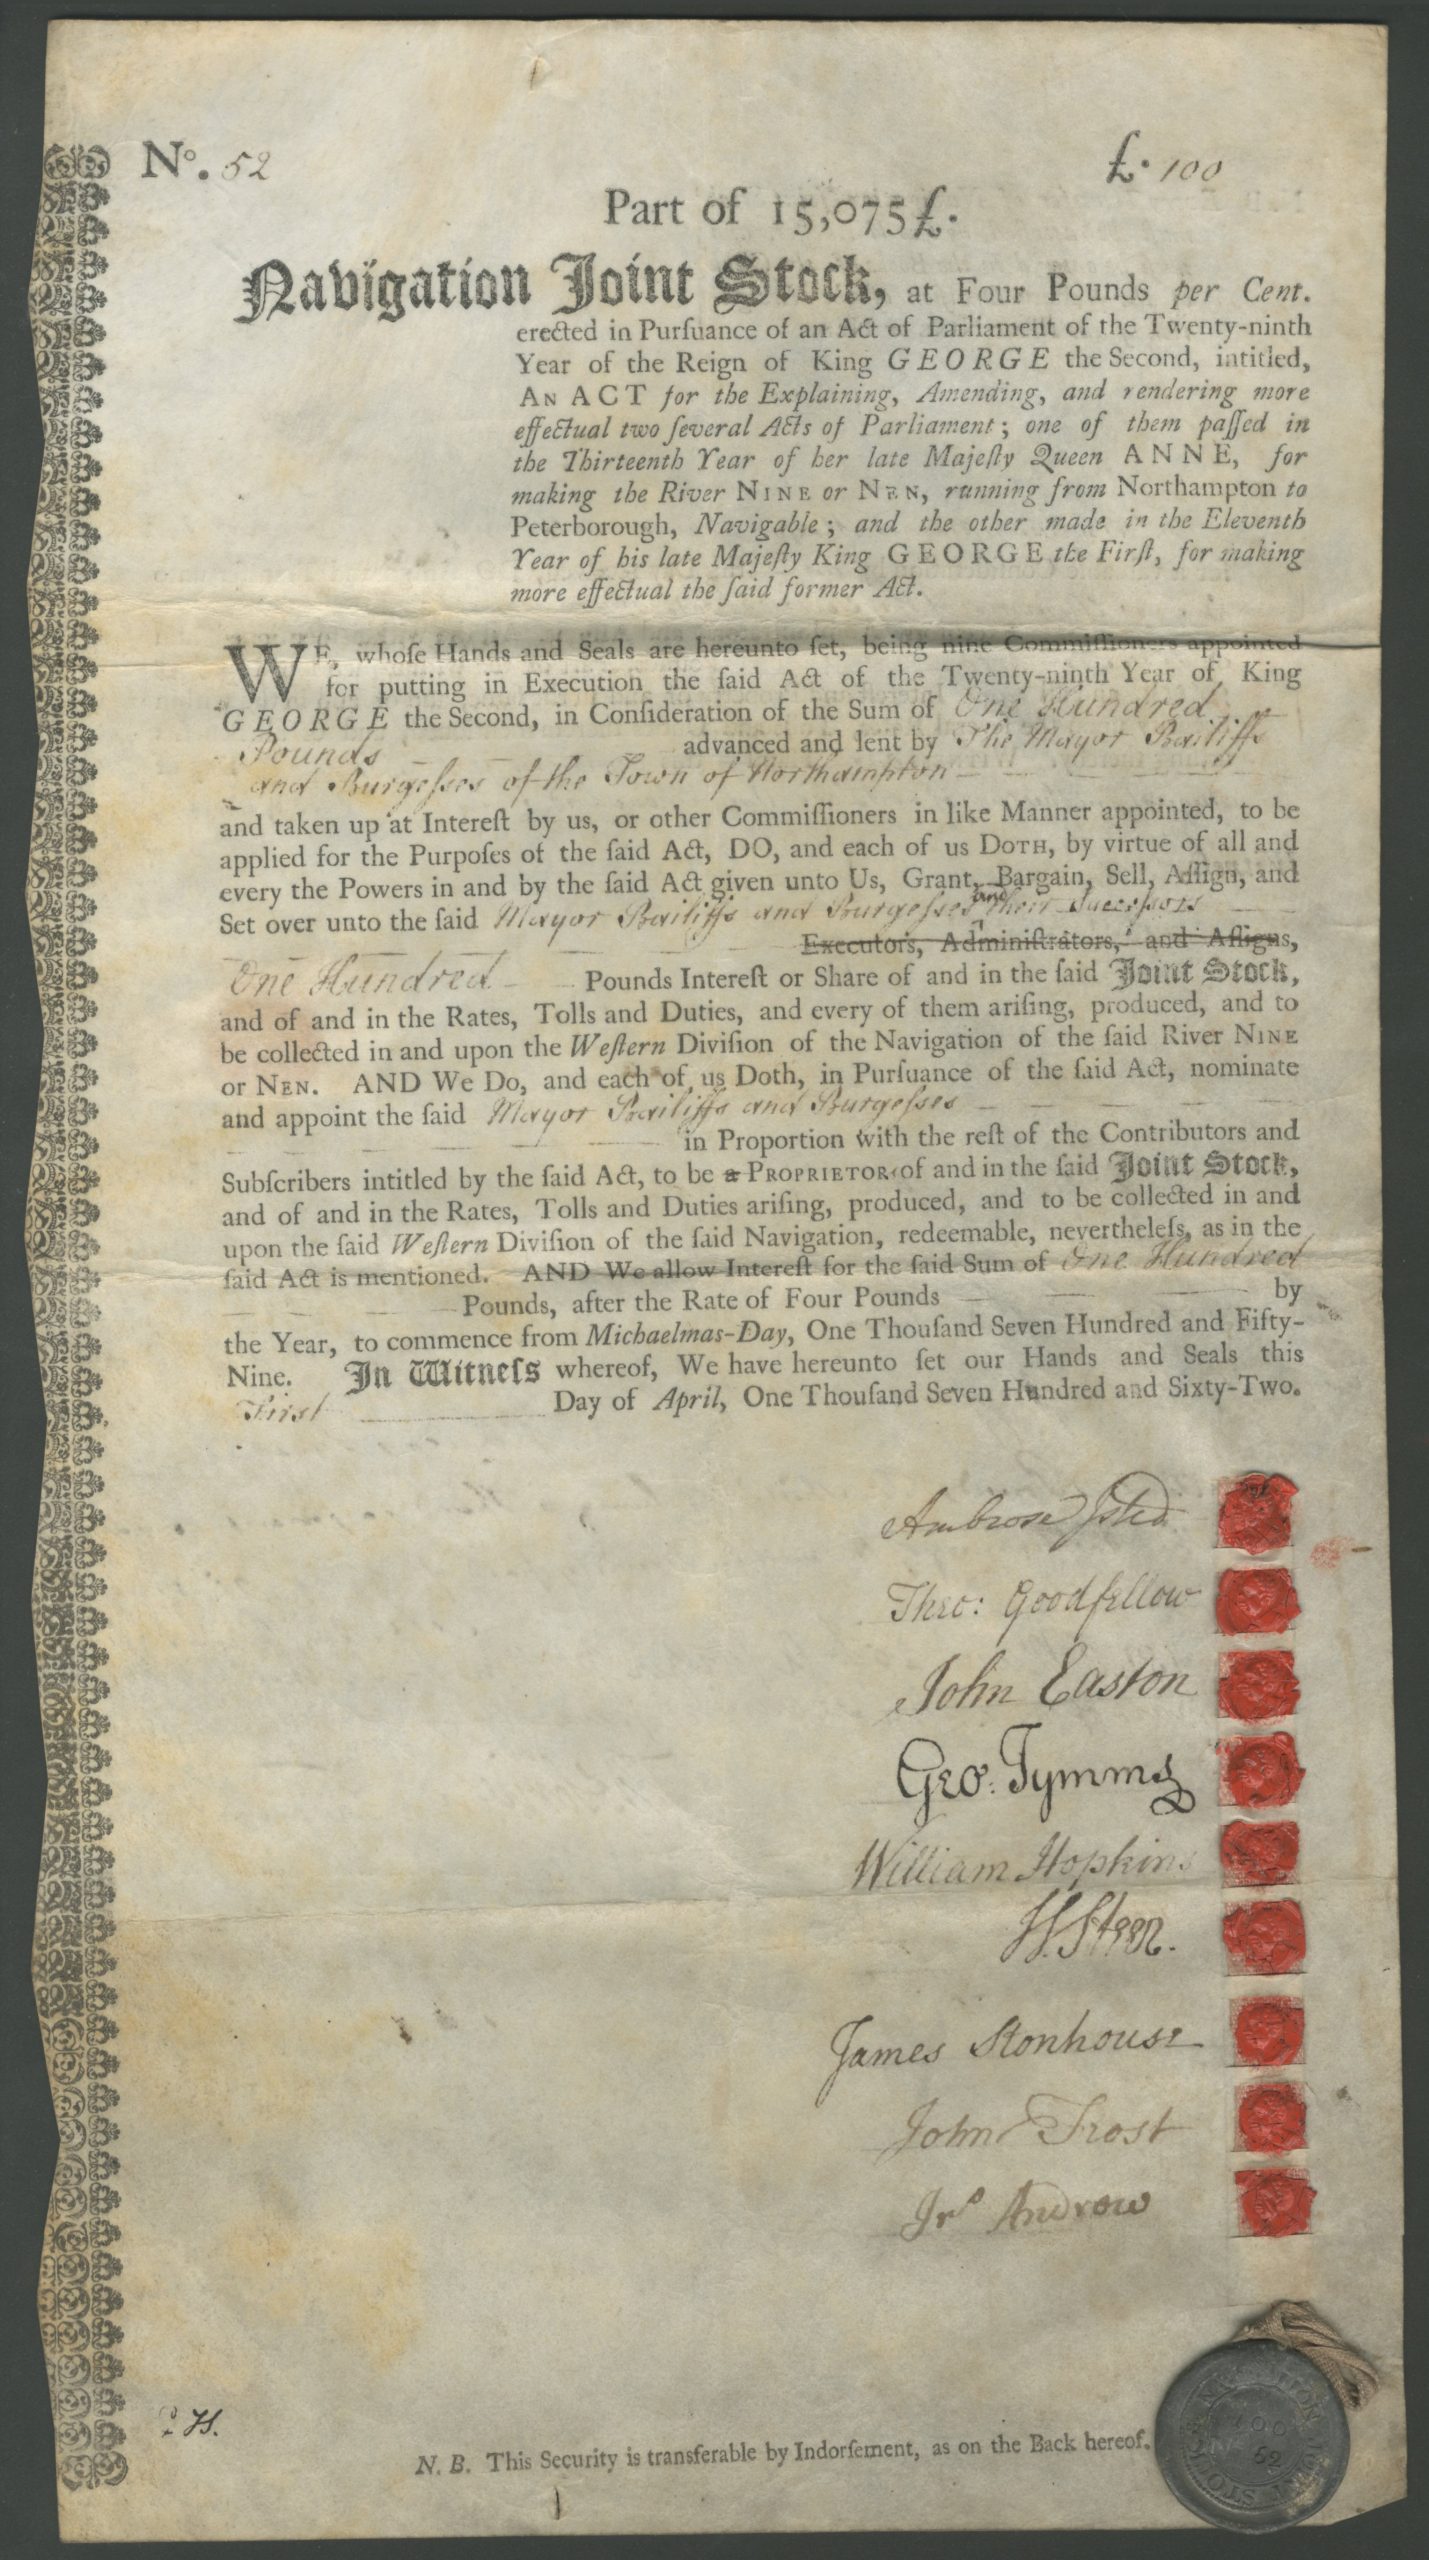 No. 52 £. 100
Part of 15,075£.
Navigation Joint Stock, at Four Pounds per Cent.
erected in Purſuance of an Act of Parliament of the Twenty-ninth
Year of the Reign of King GEORGE the Second, intitled,
AN ACT for the Explaining, Amending, and rendering more
effectual two ſeveral Acts of Parliament; one of them paſſed in
the Thirteenth Year of her late Majeſty Queen ANNE, for
making the River NINE or NEN, running from Northampton to
Peterborough, Navigable; and the other made in the Eleventh
Year of his late Majeſty King GEORGE the Firſt, for making
more effectual the ſaid former Act.
WE, whoſe Hands and Seals are hereunto ſet, being nine Commiſſioners appointed
for putting in Execution the ſaid Act of the Twenty-ninth Year of King
GEORGE the Second, in Conſideration of the Sum of One Hundred
Pounds advanced and lent by The Mayor Bailiffs
and Burgeſses of the Town of Northampton
and taken up at Intereſt by us, or other Commiſſioners in like Manner appointed, to be
applied for the Purpoſes of the ſaid Act, DO, and each of us DOTH, by virtue of all and
every the Powers in and by the ſaid Act given unto Us, Grant, Bargain, Sell, Aſſign, and
Set over unto the ſaid Mayor Bailiffs and Burgeſses and their Succeſsors
Executors, Adminiſtrators, and Aſſigns,
One Hundred Pounds Intereſt or Share of and in the ſaid Joint Stock,
and of and in the Rates, Tolls and Duties, and every of them ariſing, produced, and to
be collected in and upon the Weſtern Diviſion of the Navigation of the ſaid River NINE
or NEN. AND We Do, and each of us Doth, in Purſuance of the ſaid Act, nominate
and appoint the ſaid Mayor Bailiffs and Burgeſses
in Proportion with the reſt of the Contributors and
Subſcribers intitled by the ſaid Act, to be a PROPRIETOR of and in the ſaid Joint Stock,
and of and in the Rates, Tolls and Duties ariſing, produced, and to be collected in and
upon the ſaid Weſtern Diviſion of the ſaid Navigation, redeemable, nevertheleſs, as in the
ſaid Act is mentioned. AND We allow Intereſt for the ſaid Sum of One Hundred
Pounds, after the Rate of Four Pounds by
the Year, to commence from Michaelmas-Day, One Thouſand Seven Hundred and Fifty-
Nine. In Witneſs whereof, We have hereunto ſet our Hands and Seals this
First Day of April, One Thouſand Seven Hundred and Sixty-Two.
Ambrose Isted
Theo: Goodfellow
John Easton
Geo. Tymms
William Hopkins
James Stonhouse
John Frost
Jno Androw
N. B. This Security is transferable by Indorſement, as on the Back hereof.
NAVIGATION JOINT STOCK
100
52